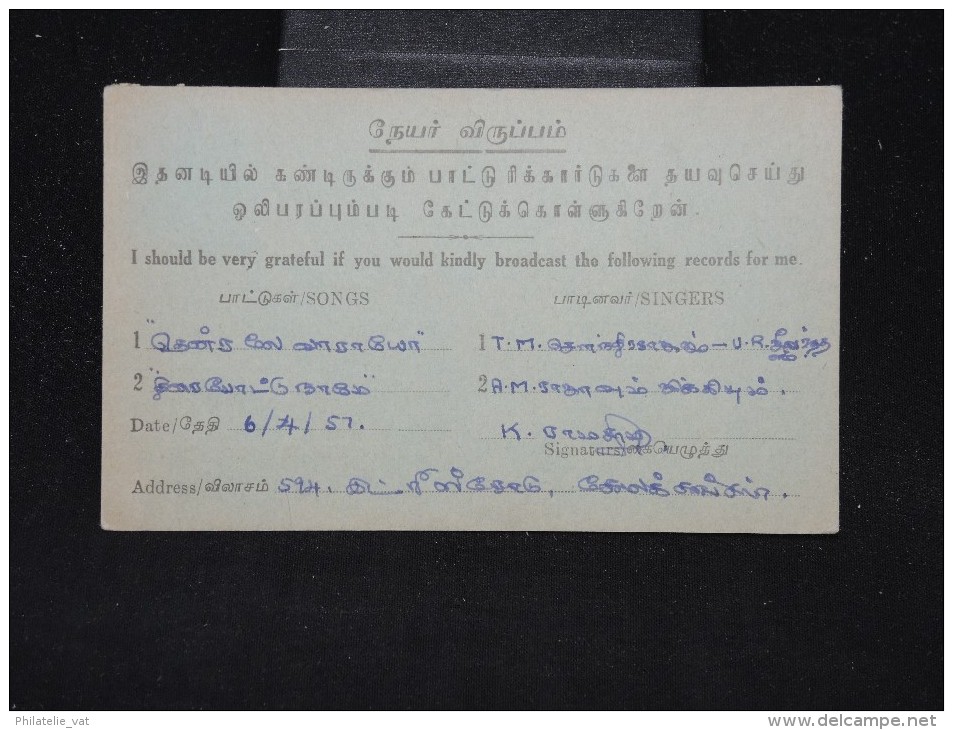 நேயர் விருப்பம்
இதனடியில் கண்டிருக்கும் பாட்டு ரிக்கார்டுகளை தயவுசெய்து
ஒலிபரப்பும்படி கேட்டுக்கொள்ளுகிறேன்.
I should be very grateful if you would kindly broadcast the following records for me.
பாட்டுகள்/SONGS பாடினவர்/SINGERS
1 "தென்றலே வாராயோ" 1 T.M. சௌந்திரராஜன் - U.R.
2 "திரை போட்டு நாமே" 2 A.M. ராஜாவும் ஜிக்கியும்.
Date/தேதி 6/4/57. K.
Signature/கையெழுத்து
Address/விலாசம்
Philatelie_vat
www.delcampe.net